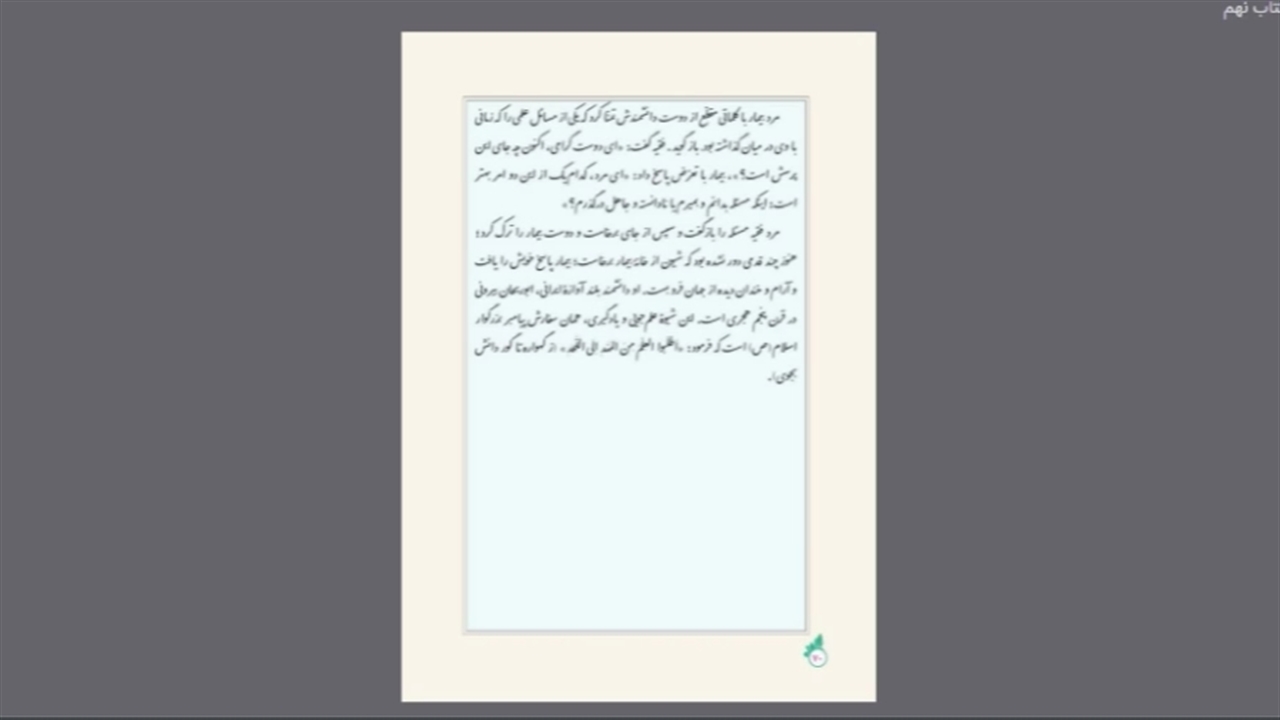 تاب نهم
مرد بیمار با کلماتی منقطع از دوست دانشمندش تمنا کرد که یکی از مسائل علمی را که زمانی
با وی در میان گذاشته بود باز گوید. فقیه گفت: «ای دوست گرامی، اکنون چه جای این
پرسش است؟». بیمار با تعرّض پاسخ داد: «ای مرد، کدام یک از این دو امر بهتر
است: اینکه مسئله بدانم و بمیرم یا نادانسته و جاهل درگذرم؟»
مرد فقیه مسئله را بازگفت و سپس از جای برخاست و دوست بیمار را ترک کرد؛
هنوز چند قدمی دور نشده بود که شیون از خانه بیمار برخاست؛ بیمار پاسخ خویش را یافت
و آرام و خندان دیده از جهان فرو بست. او دانشمند بلند آوازهٔ ایرانی، ابوریحان بیرونی
در قرن پنجم هجری است. این شیوهٔ علم‌جویی و یادگیری، همان سفارش پیامبر بزرگوار
اسلام (ص) است که فرمود: «اطلبوا العلم من المهد الی اللّحد» از گهواره تا گور دانش
بجوی).
۲۰